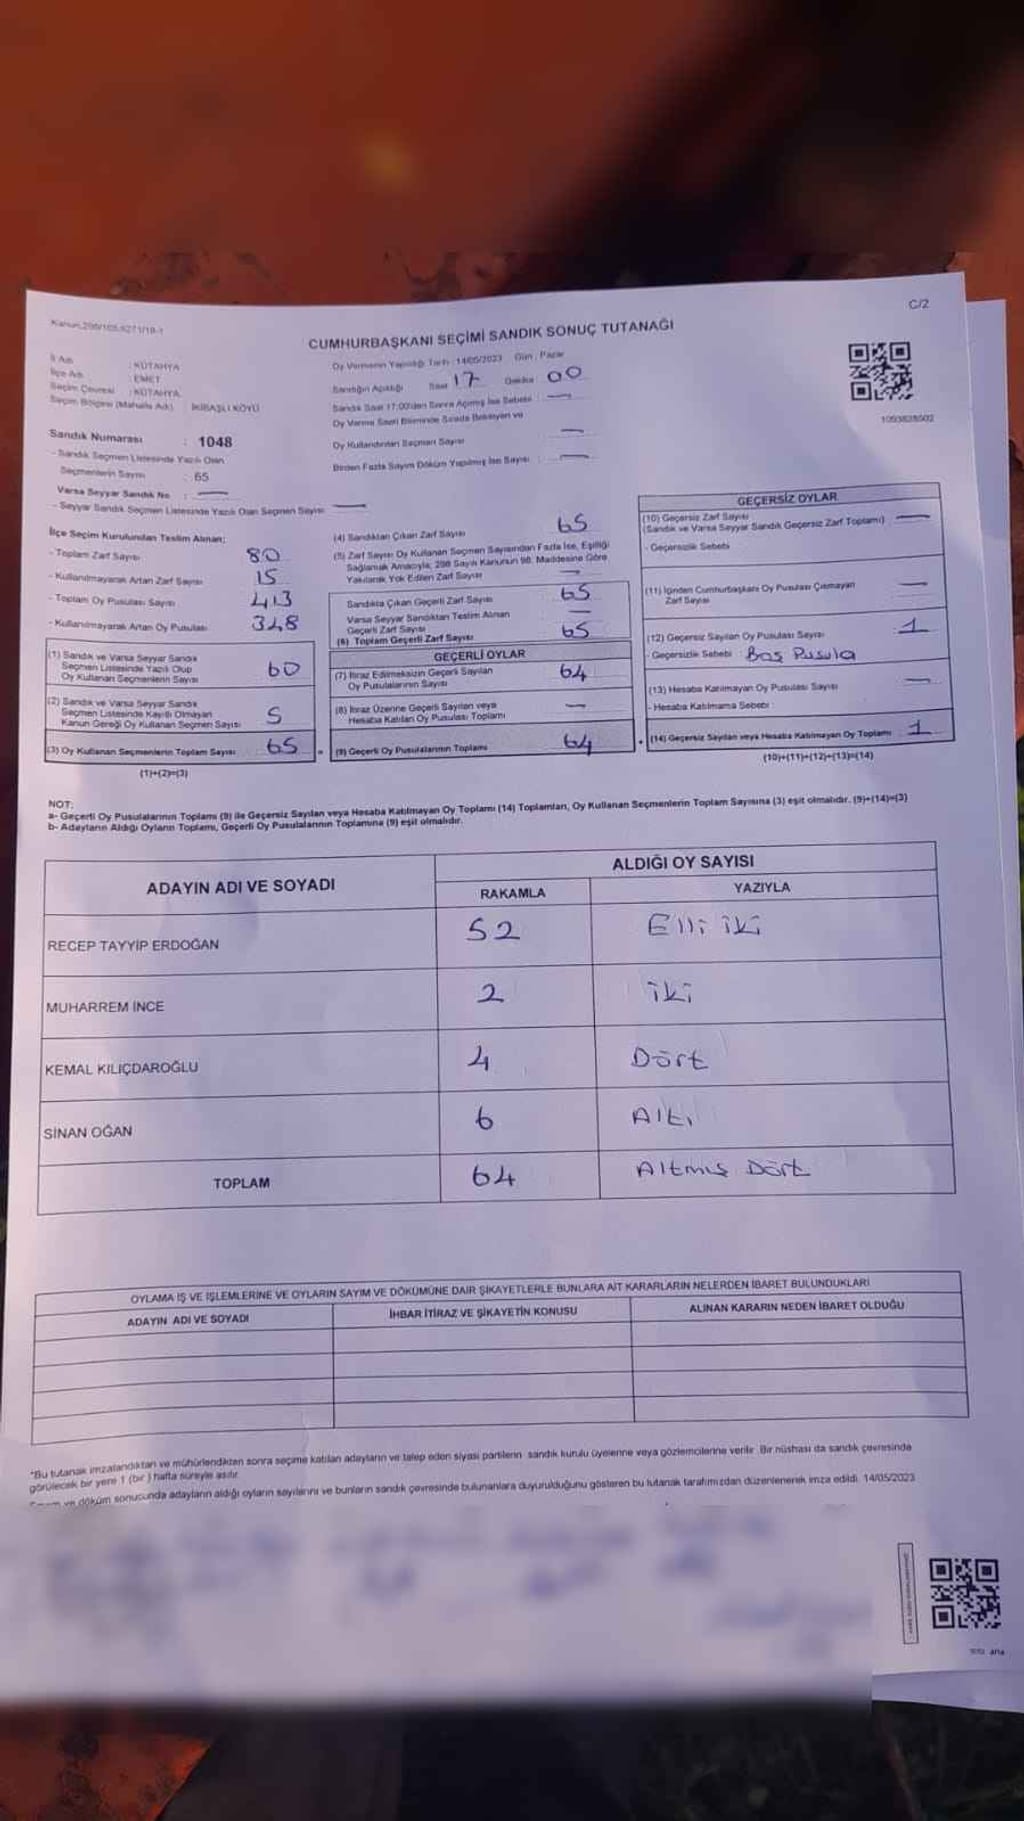 C/2
Kanun,298/105,6271/18-1
CUMHURBAŞKANI SEÇİMİ SANDIK SONUÇ TUTANAĞI
İl Adı : KÜTAHYA
İlçe Adı : EMET
Seçim Çevresi : KÜTAHYA
Seçim Bölgesi (Mahalle Adı) İKİBAŞLI KÖYÜ
Sandık Numarası : 1048
- Sandık Seçmen Listesinde Yazılı Olan
Seçmenlerin Sayısı : 65
Varsa Seyyar Sandık No : —
- Seyyar Sandık Seçmen Listesinde Yazılı Olan Seçmen Sayısı —
Oy Vermenin Yapıldığı Tarih : 14/05/2023 Gün : Pazar
Sandığın Açıldığı Saat 17 Dakika 00
Sandık Saat 17:00'den Sonra Açılmış İse Sebebi : —
Oy Verme Saati Bitiminde Sırada Bekleyen ve
Oy Kullandırılan Seçmen Sayısı —
Birden Fazla Sayım Döküm Yapılmış İse Sayısı : —
1093828502
İlçe Seçim Kurulundan Teslim Alınan;
- Toplam Zarf Sayısı 80
- Kullanılmayarak Artan Zarf Sayısı 15
- Toplam Oy Pusulası Sayısı 413
- Kullanılmayarak Artan Oy Pusulası 348
(1) Sandık ve Varsa Seyyar Sandık
Seçmen Listesinde Yazılı Olup
Oy Kullanan Seçmenlerin Sayısı 60
(2) Sandık ve Varsa Seyyar Sandık
Seçmen Listesinde Kayıtlı Olmayan
Kanun Gereği Oy Kullanan Seçmen Sayısı 5
(3) Oy Kullanan Seçmenlerin Toplam Sayısı 65
(1)+(2)=(3)
(4) Sandıktan Çıkan Zarf Sayısı 65
(5) Zarf Sayısı Oy Kullanan Seçmen Sayısından Fazla İse, Eşitliği
Sağlamak Amacıyla; 298 Sayılı Kanunun 98. Maddesine Göre
Yakılarak Yok Edilen Zarf Sayısı —
Sandıkta Çıkan Geçerli Zarf Sayısı 65
Varsa Seyyar Sandıktan Teslim Alınan
Geçerli Zarf Sayısı —
(6) Toplam Geçerli Zarf Sayısı 65
GEÇERLİ OYLAR
(7) İtiraz Edilmeksizin Geçerli Sayılan
Oy Pusulalarının Sayısı 64
(8) İtiraz Üzerine Geçerli Sayılan veya
Hesaba Katılan Oy Pusulası Toplamı —
(9) Geçerli Oy Pusulalarının Toplamı 64
GEÇERSİZ OYLAR
(10) Geçersiz Zarf Sayısı —
(Sandık ve Varsa Seyyar Sandık Geçersiz Zarf Toplamı)
- Geçersizlik Sebebi
(11) İçinden Cumhurbaşkanı Oy Pusulası Çıkmayan
Zarf Sayısı —
(12) Geçersiz Sayılan Oy Pusulası Sayısı 1
- Geçersizlik Sebebi : Boş Pusula
(13) Hesaba Katılmayan Oy Pusulası Sayısı —
- Hesaba Katılmama Sebebi :
(14) Geçersiz Sayılan veya Hesaba Katılmayan Oy Toplamı 1
(10)+(11)+(12)+(13)=(14)
NOT:
a- Geçerli Oy Pusulalarının Toplamı (9) ile Geçersiz Sayılan veya Hesaba Katılmayan Oy Toplamı (14) Toplamları, Oy Kullanan Seçmenlerin Toplam Sayısına (3) eşit olmalıdır. (9)+(14)=(3)
b- Adayların Aldığı Oyların Toplamı, Geçerli Oy Pusulalarının Toplamına (9) eşit olmalıdır.
ADAYIN ADI VE SOYADI ALDIĞI OY SAYISI
RAKAMLA YAZIYLA
RECEP TAYYİP ERDOĞAN 52 Elli iki
MUHARREM İNCE 2 iki
KEMAL KILIÇDAROĞLU 4 Dört
SİNAN OĞAN 6 Altı
TOPLAM 64 Altmış Dört
OYLAMA İŞ VE İŞLEMLERİNE VE OYLARIN SAYIM VE DÖKÜMÜNE DAİR ŞİKAYETLERLE BUNLARA AİT KARARLARIN NELERDEN İBARET BULUNDUKLARI
ADAYIN ADI VE SOYADI İHBAR İTİRAZ VE ŞİKAYETİN KONUSU ALINAN KARARIN NEDEN İBARET OLDUĞU
*Bu tutanak imzalandıktan ve mühürlendikten sonra seçime katılan adayların ve talep eden siyasi partilerin sandık kurulu üyelerine veya gözlemcilerine verilir. Bir nüshası da sandık çevresinde
görülecek bir yere 1 (bir) hafta süreyle asılır.
ve döküm sonucunda adayların aldığı oyların sayılarını ve bunların sandık çevresinde bulunanlara duyurulduğunu gösteren bu tutanak tarafımızdan düzenlenerek imza edildi. 14/05/2023